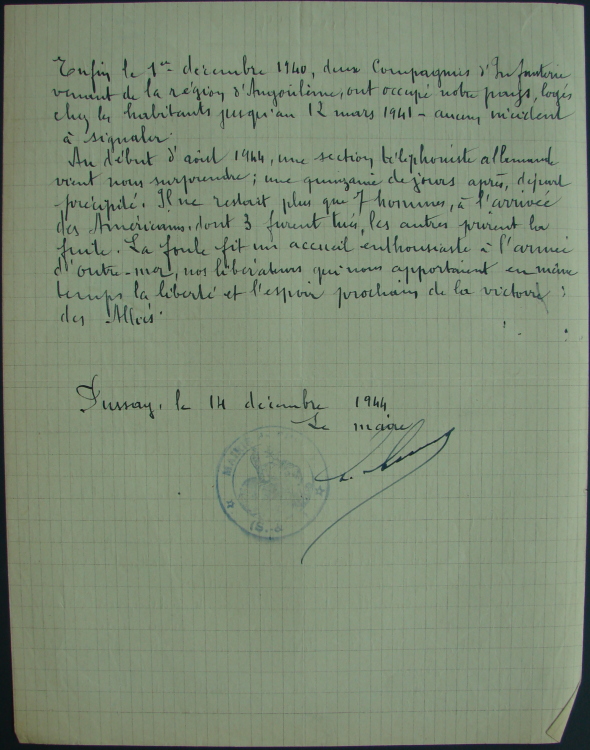 Enfin le 1er décembre 1940, deux Compagnies d'Infanterie
venant de la région d'Angoulême, ont occupé notre pays, logés
chez les habitants jusqu'au 12 mars 1941 - aucun incident
à signaler.
Au début d'août 1944, une section téléphoniste allemande
vient nous surprendre ; une quinzaine de jours après, départ
précipité. Il ne restait plus que 7 hommes, à l'arrivée
des Américains, dont 3 furent tués, les autres prirent la
fuite. La foule fit un accueil enthousiaste à l'armée
d'outre-mer, nos libérateurs qui nous apportaient en même
temps la liberté et l'espoir prochain de la victoire
des Alliés.
Pussay, le 14 décembre 1944
Le maire
MAIRIE